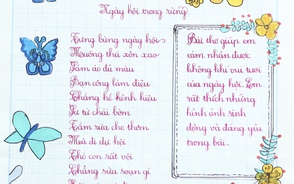 Ngày hội trong rừng
Tưng bừng ngày hội
Muông thú xôn xao
Làm áo đủ màu
Bạn công làm điệu
Chàng hề kênh kiệu
Là tú chài bờm
Tắm rửa cho thơm
Mới đi dự hội
Thỏ con rất vội
Chẳng sửa soạn gì
Bài thơ giúp em
cảm nhận được
không khí vui tươi
của ngày hội. Em
rất thích những
hình ảnh sinh
động và đáng yêu
trong bài.